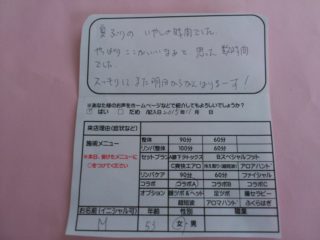 夏ぶりの いやしの時間でした。
やっぱりここがいいなぁと思った数時間
でした。
スッキリしまた明日からがんばりまーす!
※あなた様のお声をホームページなどで紹介してもよろしいでしょうか?
はい □ だめ /記入日 2015年11月 日
来店理由(症状など)
施術メニュー
※本日、受けたメニューに
○をつけてください
整体 90分 60分
リンパ整体 90分 60分
セットプラン A 腰下デトックス B スペシャルフット
C 爽快エアロ アロマハンド
リンパケア 90分 60分 ファイシャル
コラボ コラボA コラボB コラボC
オプション 腰ツボ&ヘッド 足ツボ 痩せセラピー
超短波 アロマハンド ふくらはぎ
お名前(イニシャル可) 年齢 性別 職業
M 女・男